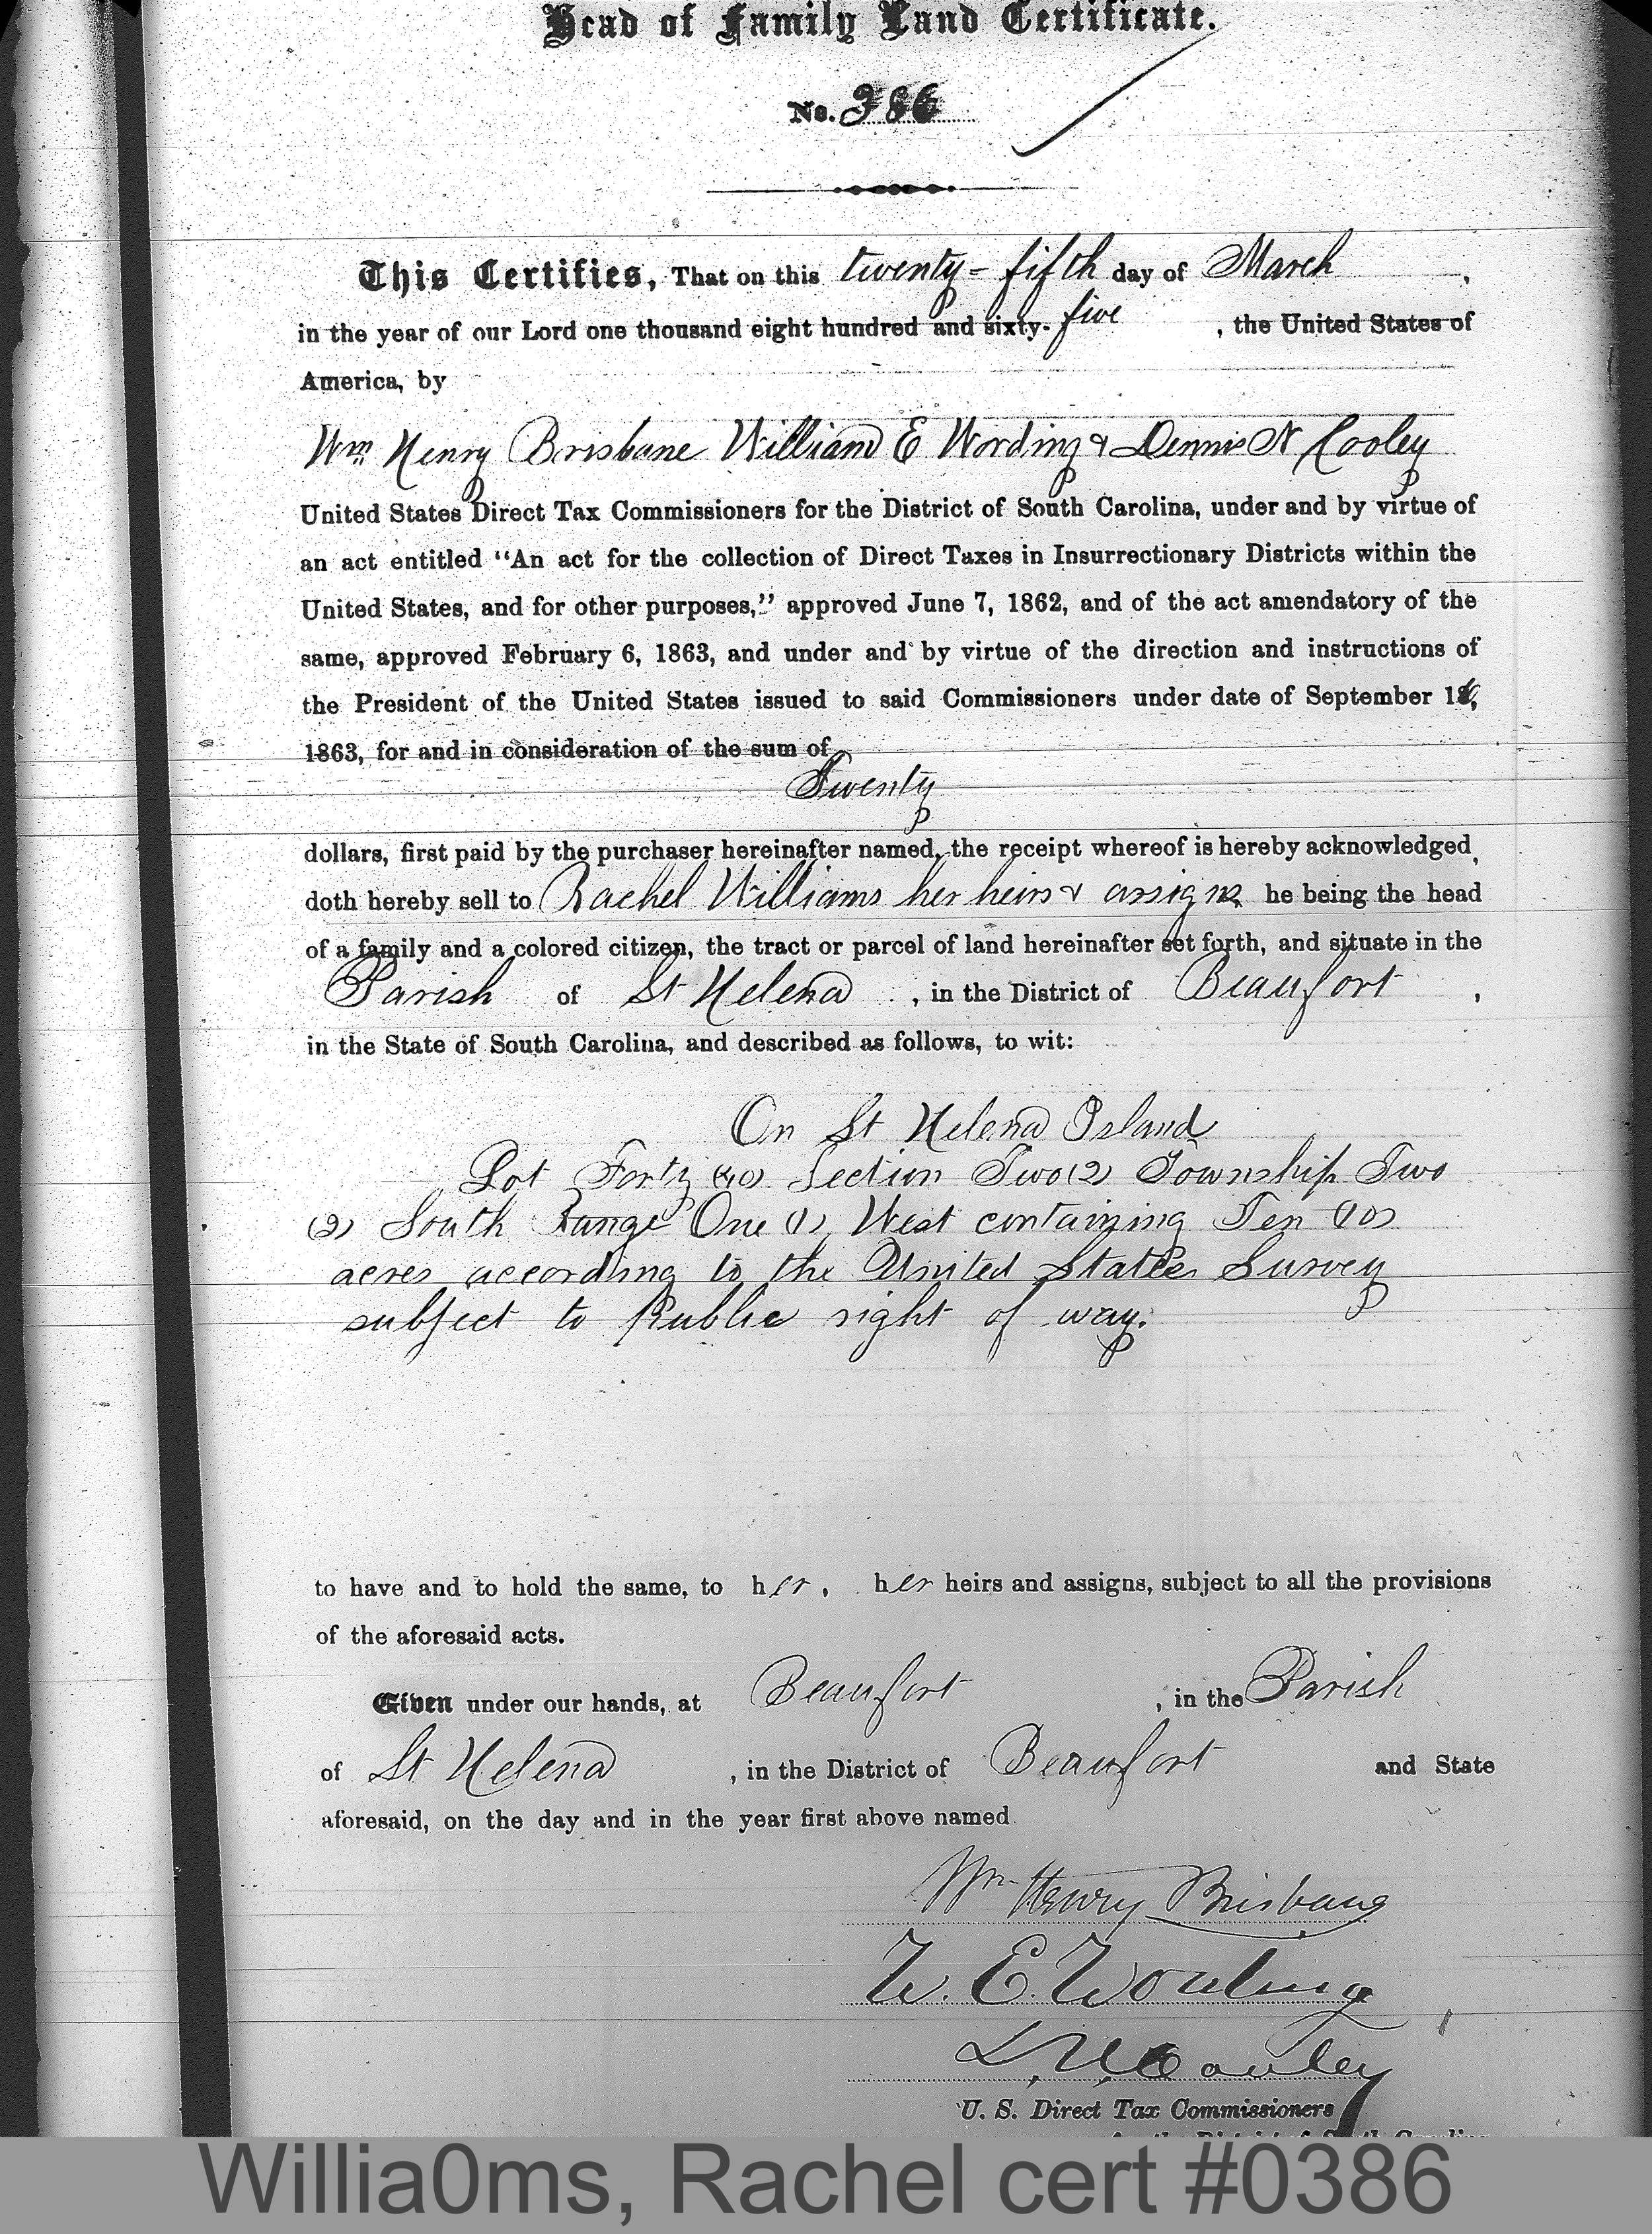 Head of Family Land Certificate.
No. 386
This Certifies, That on this twenty-fifth day of March,
in the year of our Lord one thousand eight hundred and sixty-five, the United States of
America, by
Wm Henry Brisbane William E Wording & Dennis N Cooley
United States Direct Tax Commissioners for the District of South Carolina, under and by virtue of
an act entitled "An act for the collection of Direct Taxes in Insurrectionary Districts within the
United States, and for other purposes," approved June 7, 1862, and of the act amendatory of the
same, approved February 6, 1863, and under and by virtue of the direction and instructions of
the President of the United States issued to said Commissioners under date of September 16,
1863, for and in consideration of the sum of
Twenty
dollars, first paid by the purchaser hereinafter named, the receipt whereof is hereby acknowledged,
doth hereby sell to Rachel Williams her heirs & assigns he being the head
of a family and a colored citizen, the tract or parcel of land hereinafter set forth, and situate in the
Parish of St Helena, in the District of Beaufort,
in the State of South Carolina, and described as follows, to wit:
On St Helena Island
Lot Forty (40) Section Two (2) Township Two
(2) South Range One (1) West containing Ten (10)
acres according to the United States Survey
subject to Public right of way.
to have and to hold the same, to her, her heirs and assigns, subject to all the provisions
of the aforesaid acts.
Given under our hands, at Beaufort, in the Parish
of St Helena, in the District of Beaufort and State
aforesaid, on the day and in the year first above named
Wm Henry Brisbane
W. E. Wording
D. N. Cooley
U. S. Direct Tax Commissioners
for the District of South Carolina
Willia0ms, Rachel cert #0386